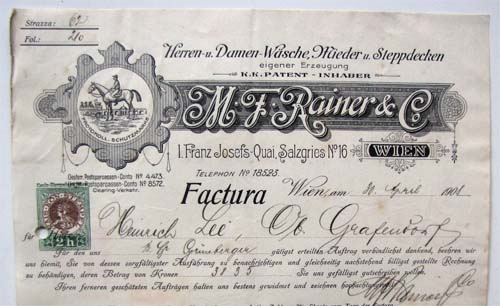 Strazza: 62
Fol.: 210
Herren- u. Damen-Wäsche, Mieder u. Steppdecken
eigener Erzeugung
K. K. PATENT - INHABER
M. F. Rainer & Co
I. Franz Josefs-Quai, Salzgries No 16
WIEN
TELEPHON No 18523.
Oesterr. Postsparcassen-Conto No 4473.
Postsparcassen-Conto No 8572.
Clearing-Verkehr.
Factura
Wien, am 30 April
Heinrich
Ob. Grafendorf
Für den uns gütigst erteilten Auftrag verbindlichst dankend, beehren wir
uns hiemit, Sie von dessen sorgfältigster Ausführung zu benachrichtigen und gleichzeitig nachstehend billigst gestellte Rechnung
zu behändigen, deren Betrag von Kronen 31.35 Sie uns gefälligst gutschreiben wollen.
Ihren ferneren geschätzten Aufträgen uns stets bestens empfohlen wissend und zeichnen